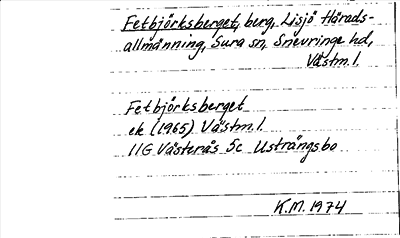 Fetbjörksberget, berg, Lisjö Härads-
allmänning, Sura sn, Snevringe hd,
Västm.l.
Fetbjörksberget
ek (1965) Västm.l.
11G Västerås 5c Usträngsbo
K.M. 1974